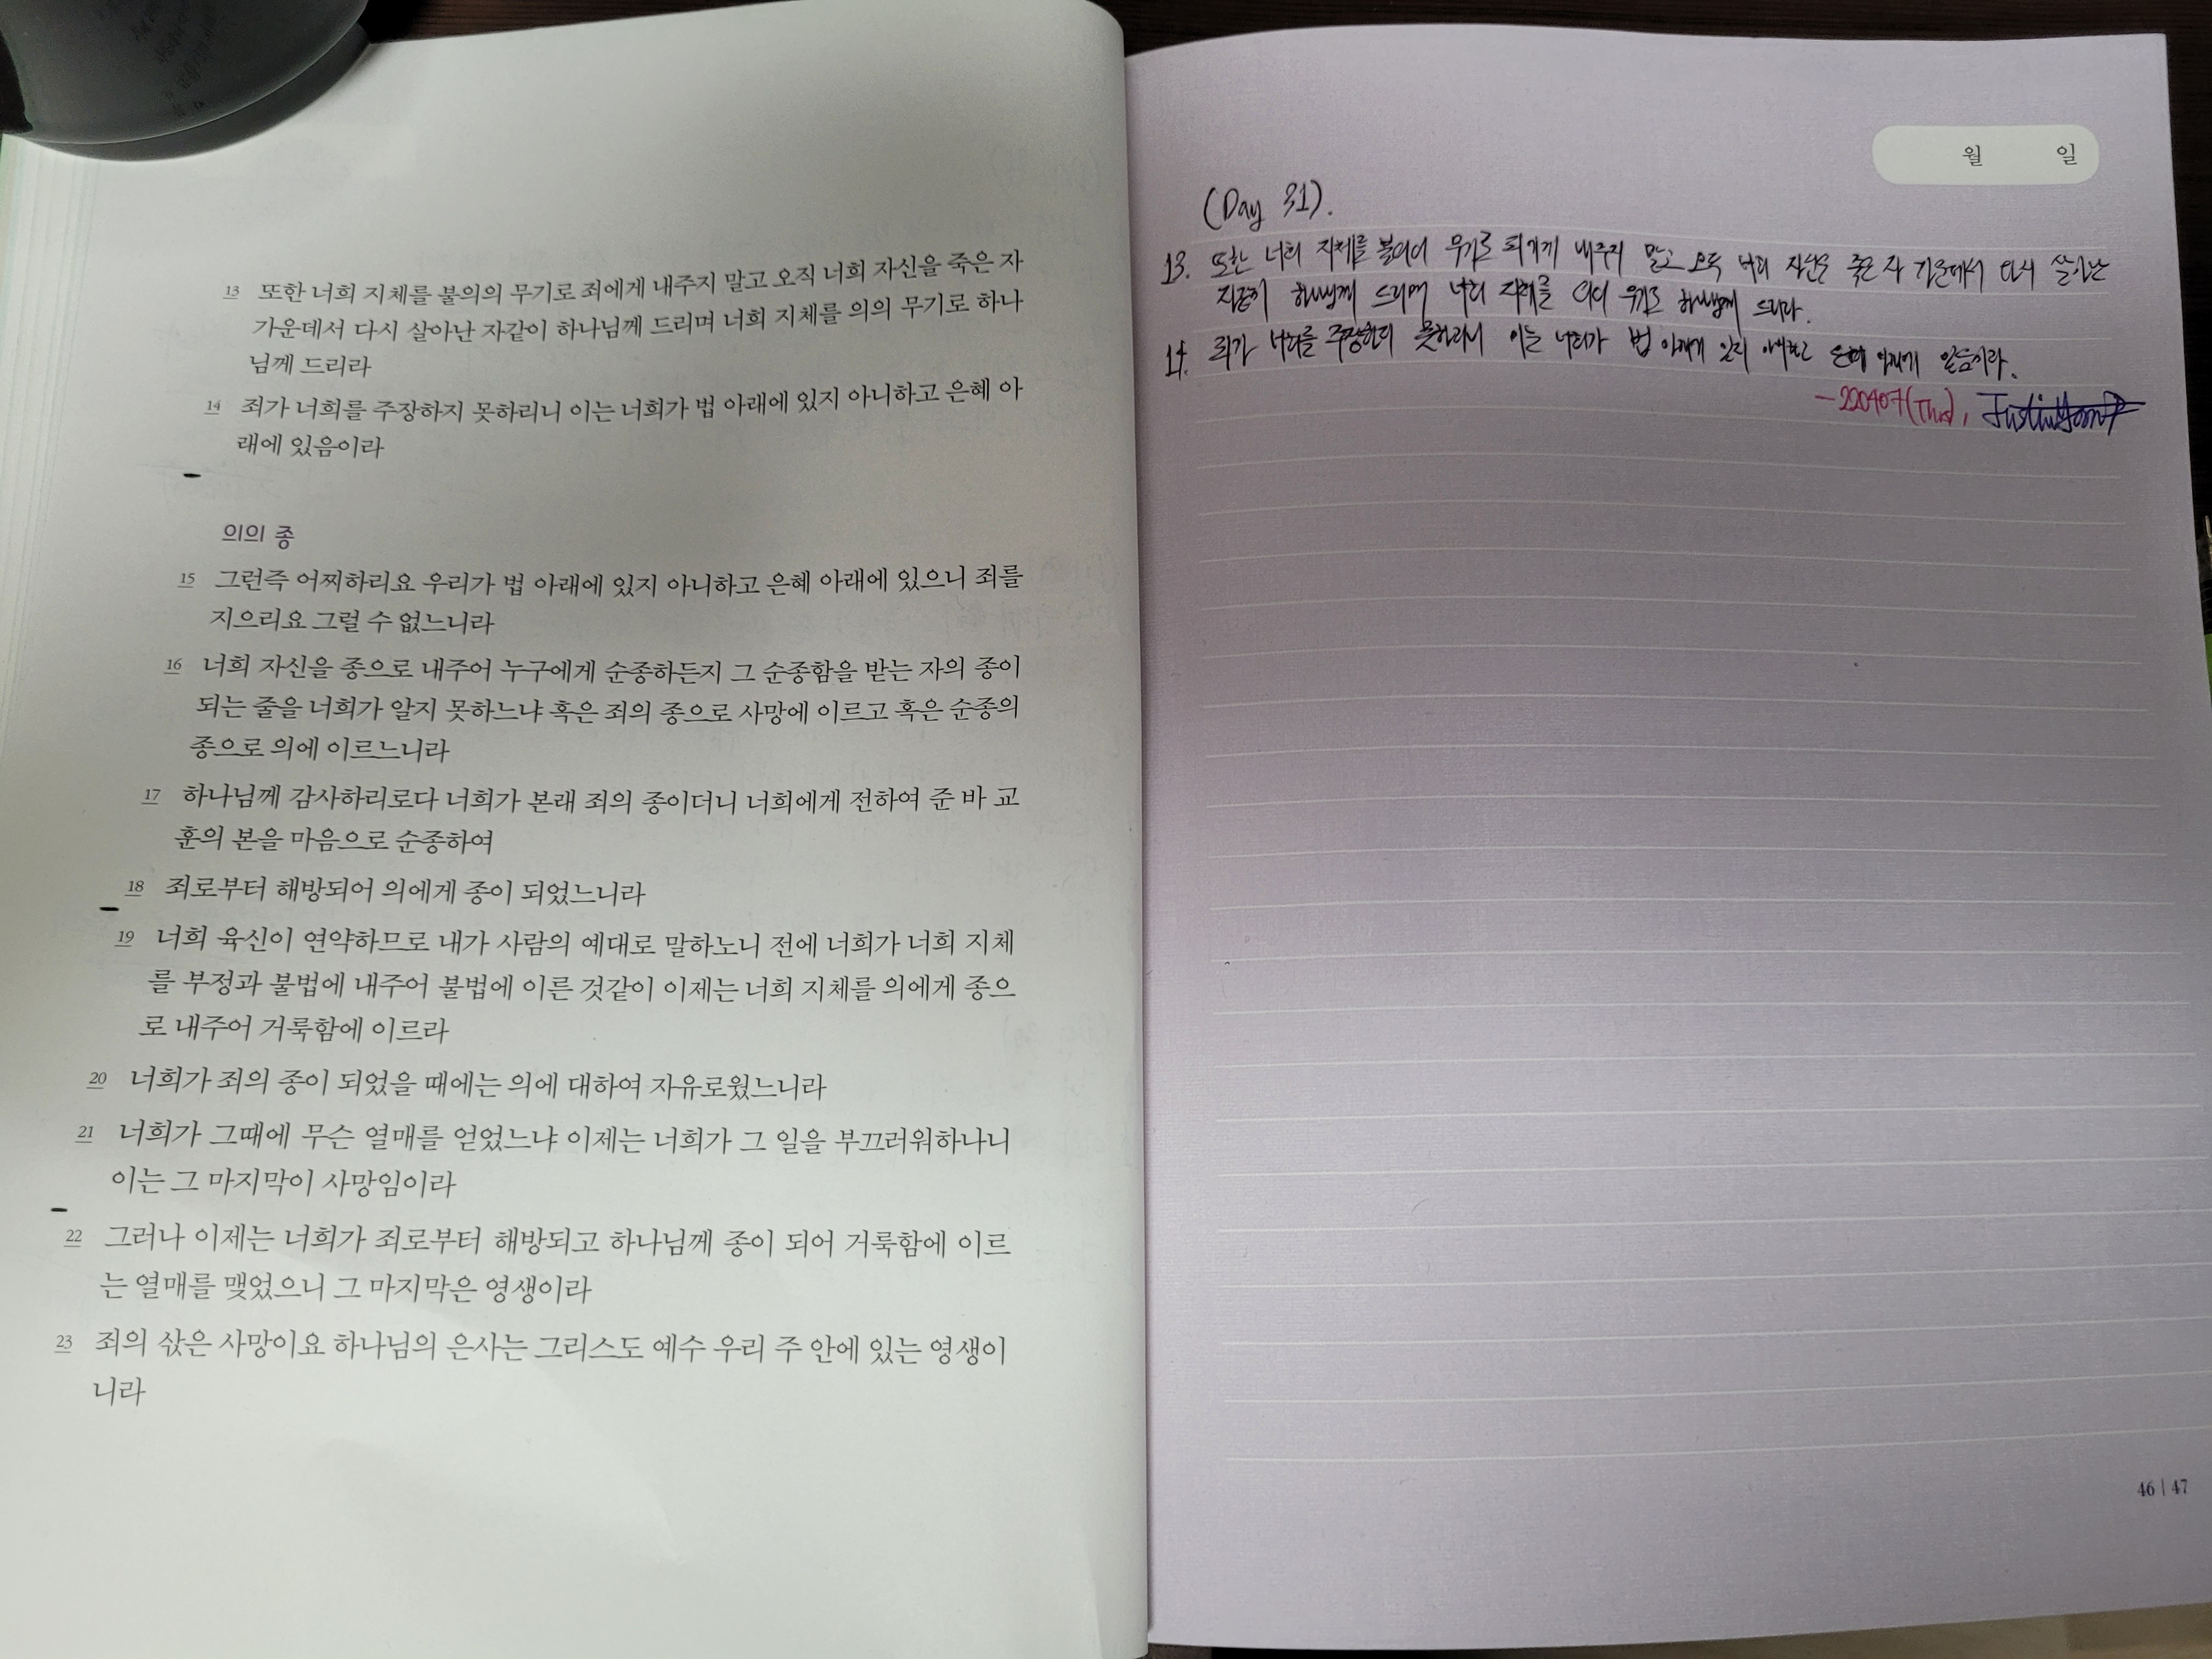 13 또한 너희 지체를 불의의 무기로 죄에게 내주지 말고 오직 너희 자신을 죽은 자
가운데서 다시 살아난 자같이 하나님께 드리며 너희 지체를 의의 무기로 하나
님께 드리라
14 죄가 너희를 주장하지 못하리니 이는 너희가 법 아래에 있지 아니하고 은혜 아
래에 있음이라
의의 종
15 그런즉 어찌하리요 우리가 법 아래에 있지 아니하고 은혜 아래에 있으니 죄를
지으리요 그럴 수 없느니라
16 너희 자신을 종으로 내주어 누구에게 순종하든지 그 순종함을 받는 자의 종이
되는 줄을 너희가 알지 못하느냐 혹은 죄의 종으로 사망에 이르고 혹은 순종의
종으로 의에 이르느니라
17 하나님께 감사하리로다 너희가 본래 죄의 종이더니 너희에게 전하여 준 바 교
훈의 본을 마음으로 순종하여
18 죄로부터 해방되어 의에게 종이 되었느니라
19 너희 육신이 연약하므로 내가 사람의 예대로 말하노니 전에 너희가 너희 지체
를 부정과 불법에 내주어 불법에 이른 것같이 이제는 너희 지체를 의에게 종으
로 내주어 거룩함에 이르라
20 너희가 죄의 종이 되었을 때에는 의에 대하여 자유로웠느니라
21 너희가 그때에 무슨 열매를 얻었느냐 이제는 너희가 그 일을 부끄러워하나니
이는 그 마지막이 사망임이라
22 그러나 이제는 너희가 죄로부터 해방되고 하나님께 종이 되어 거룩함에 이르
는 열매를 맺었으니 그 마지막은 영생이라
23 죄의 삯은 사망이요 하나님의 은사는 그리스도 예수 우리 주 안에 있는 영생이
니라
월 일
(Day 31).
13. 또한 너희 지체를 불의의 무기로 죄에게 내주지 말고 오직 너희 자신을 죽은 자 가운데서 다시 살아난
자같이 하나님께 드리며 너희 지체를 의의 무기로 하나님께 드리라.
14. 죄가 너희를 주장하지 못하리니 이는 너희가 법 아래에 있지 아니하고 은혜 아래에 있음이라.
- 220407(Thu), JustinYoon
46 | 47